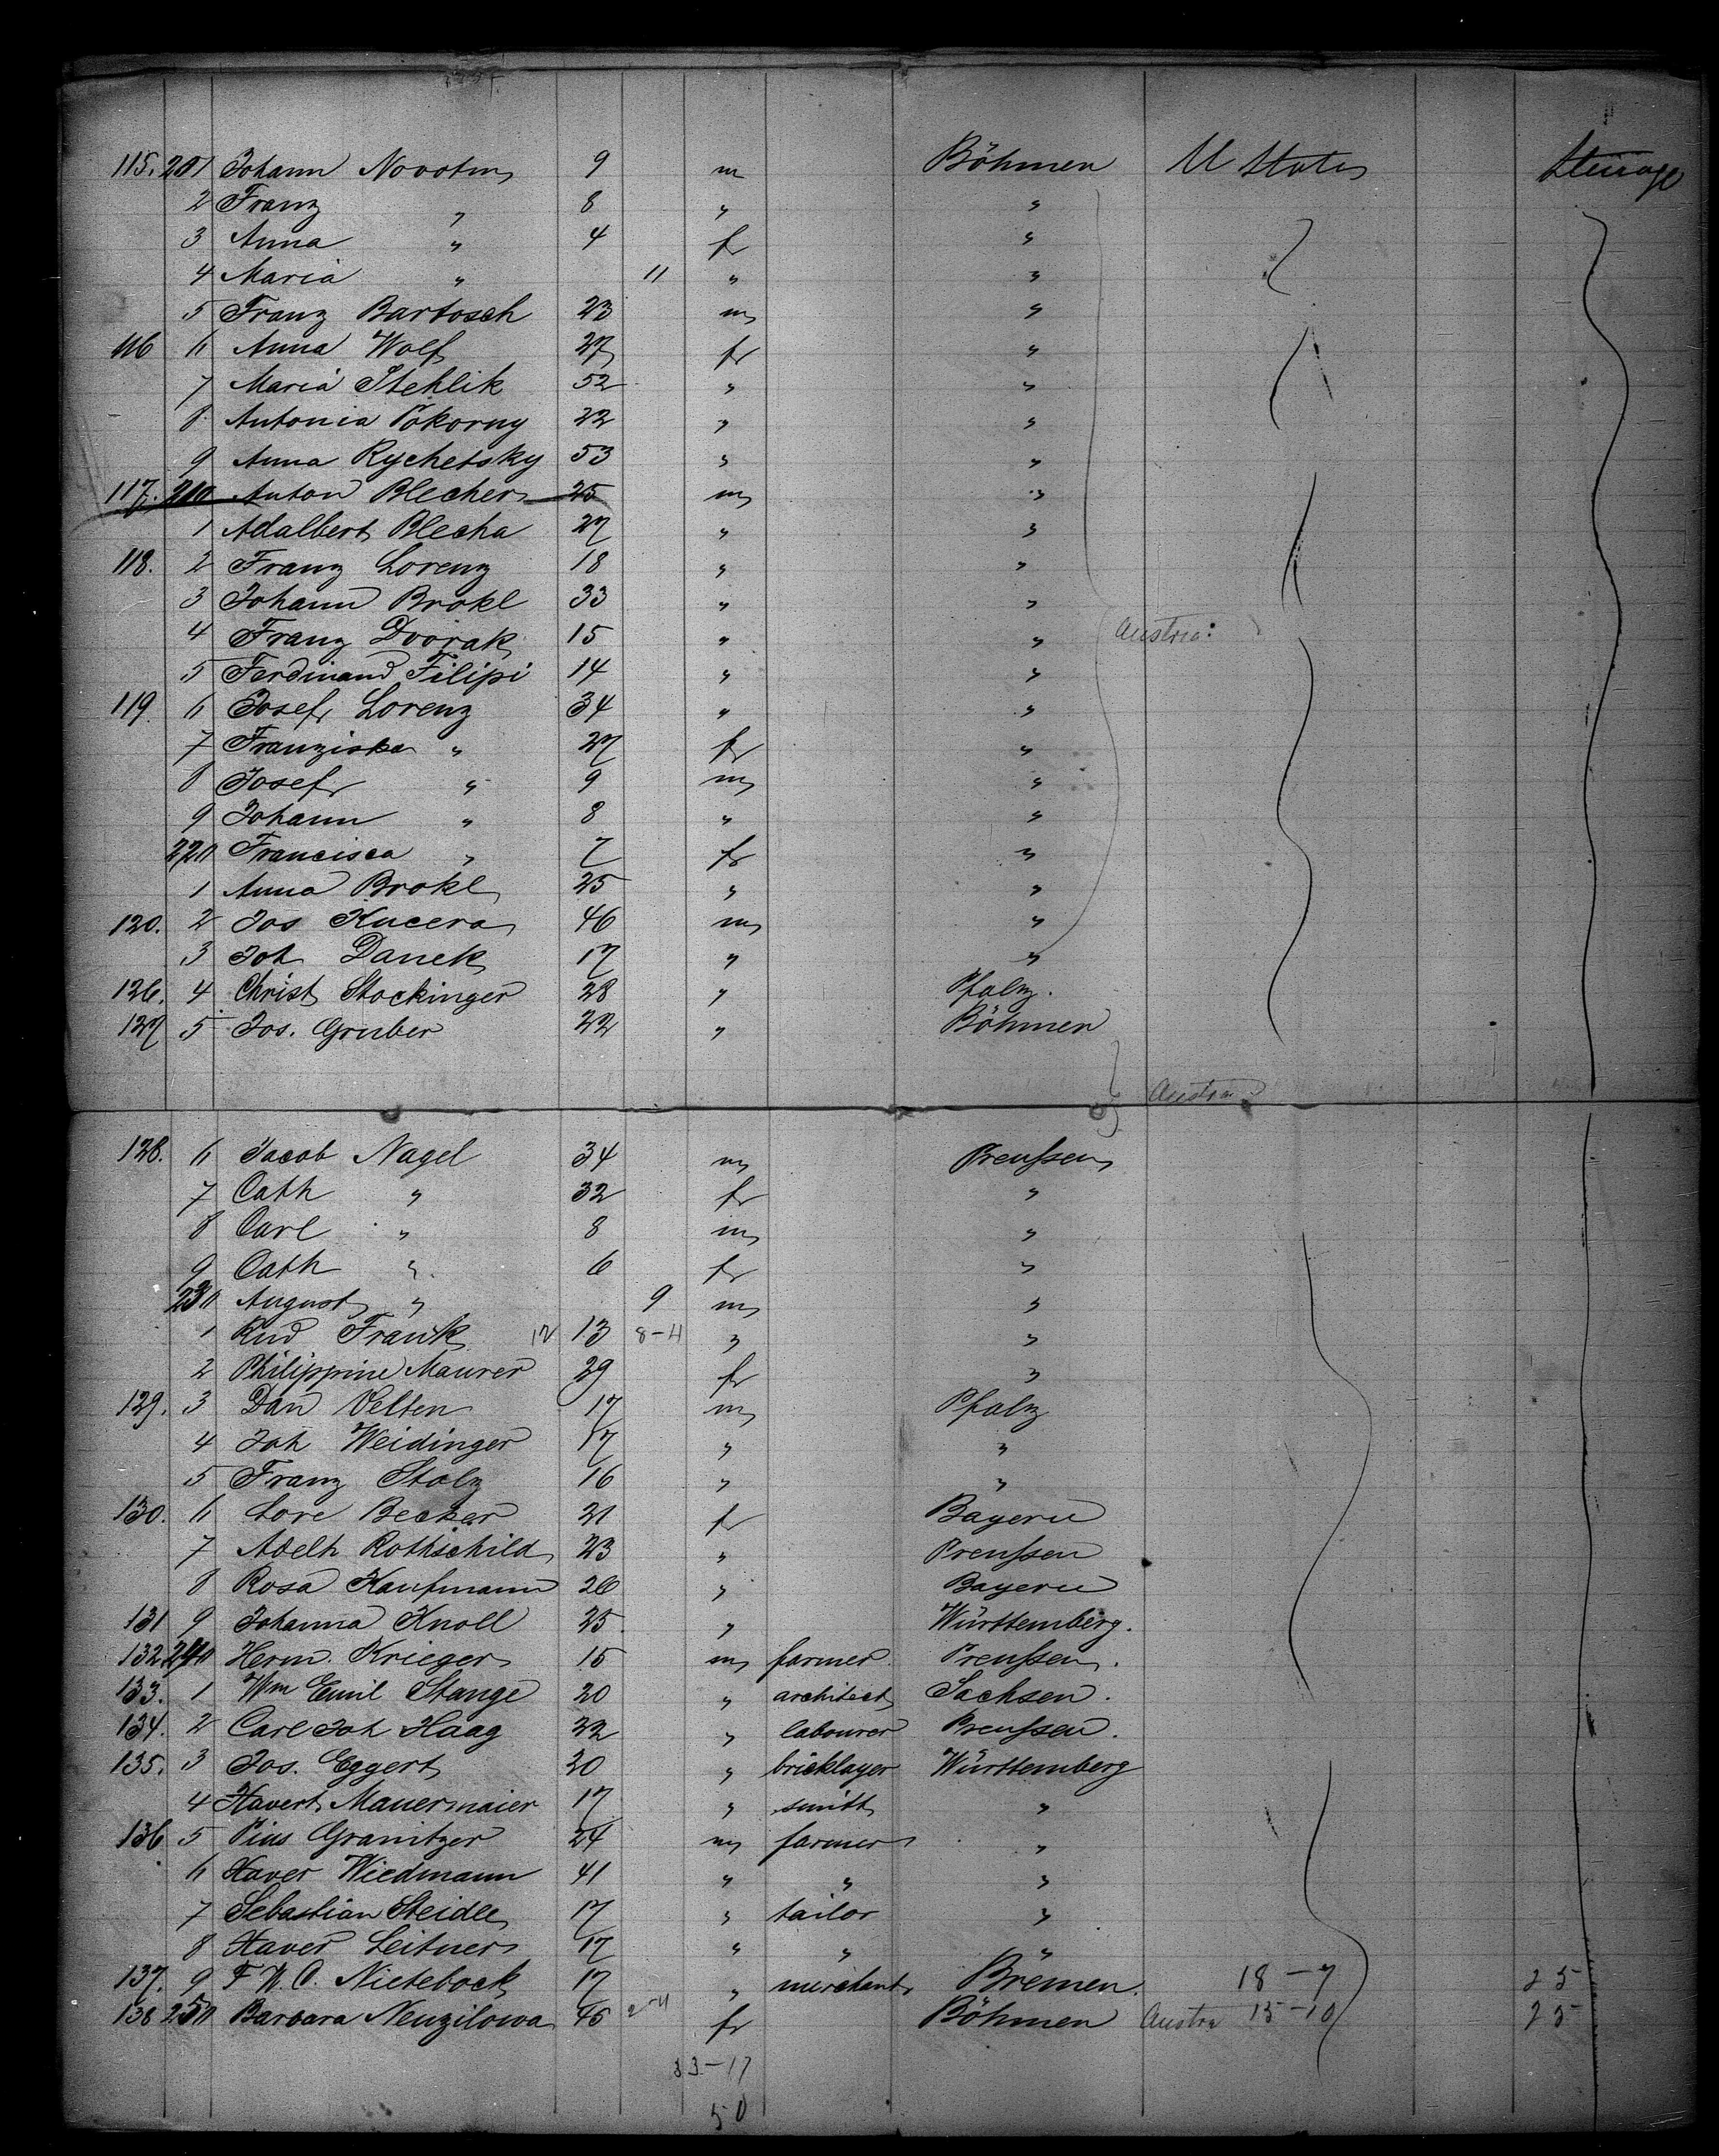 115. 201 Johann Novotny 9 m Böhmen U States Steerage
2 Franz " 8 " "
3 Anna " 4 fr "
4 Maria " 11 " "
5 Franz Bartosch 23 m "
116 6 Anna Wolf 27 fr "
7 Maria Stehlik 52 " "
8 Antonia Pokorny 22 " "
9 Anna Rychetsky 53 " "
117. 210 Anton Blecher 25 m "
1 Adalbert Blecha 27 " "
118. 2 Franz Lorenz 18 " "
3 Johann Brokl 33 " "
4 Franz Dvorak 15 " " Austria:
5 Ferdinand Filipi 14 " "
119. 6 Josef Lorenz 34 " "
7 Franziska " 27 fr "
8 Josef " 9 m "
9 Johann " 8 " "
220 Francisca " 7 fr "
1 Anna Brokl 25 " "
120. 2 Jos Kucera 46 m "
3 Joh Danek 17 " "
126. 4 Christ Stockinger 28 " Pfalz.
127 5 Jos. Gruber 22 " Böhmen
Austria
128. 6 Jacob Nagel 34 m Preußen
7 Cath " 32 fr "
8 Carl " 8 m "
9 Cath " 6 fr "
230 August " 9 m "
1 Rud Frank 12 13 8-4 " "
2 Philippine Maurer 29 fr "
129. 3 Dan Velten 17 m Pfalz
4 Joh Weidinger 17 " "
5 Franz Stolz 16 " "
130. 6 Lore Becker 21 fr Bayern
7 Adelh Rothschild 23 " Preußen
8 Rosa Kaufmann 26 " Bayern
131 9 Johanna Knoll 25 " Württemberg.
132 240 Herm. Krieger 15 m farmer Preußen.
133. 1 Wm Emil Stange 20 " architect Sachsen.
134. 2 Carl Joh Haag 22 " labourer Preußen.
135. 3 Jos. Eggert 20 " bricklayer Württemberg
4 Xavert Mauermaier 17 " smith "
136 5 Pius Granitzer 24 m farmer "
6 Xaver Wiedmann 41 " " "
7 Sebastian Steidle 17 " tailor "
8 Xaver Leitner 17 " " "
137. 9 F W. C. Nietebock 17 " merchant Bremen. 18-7 25
138 250 Barbara Neuzilowa 45 2-4 fr Böhmen Austria 15-10 25
33-17
50